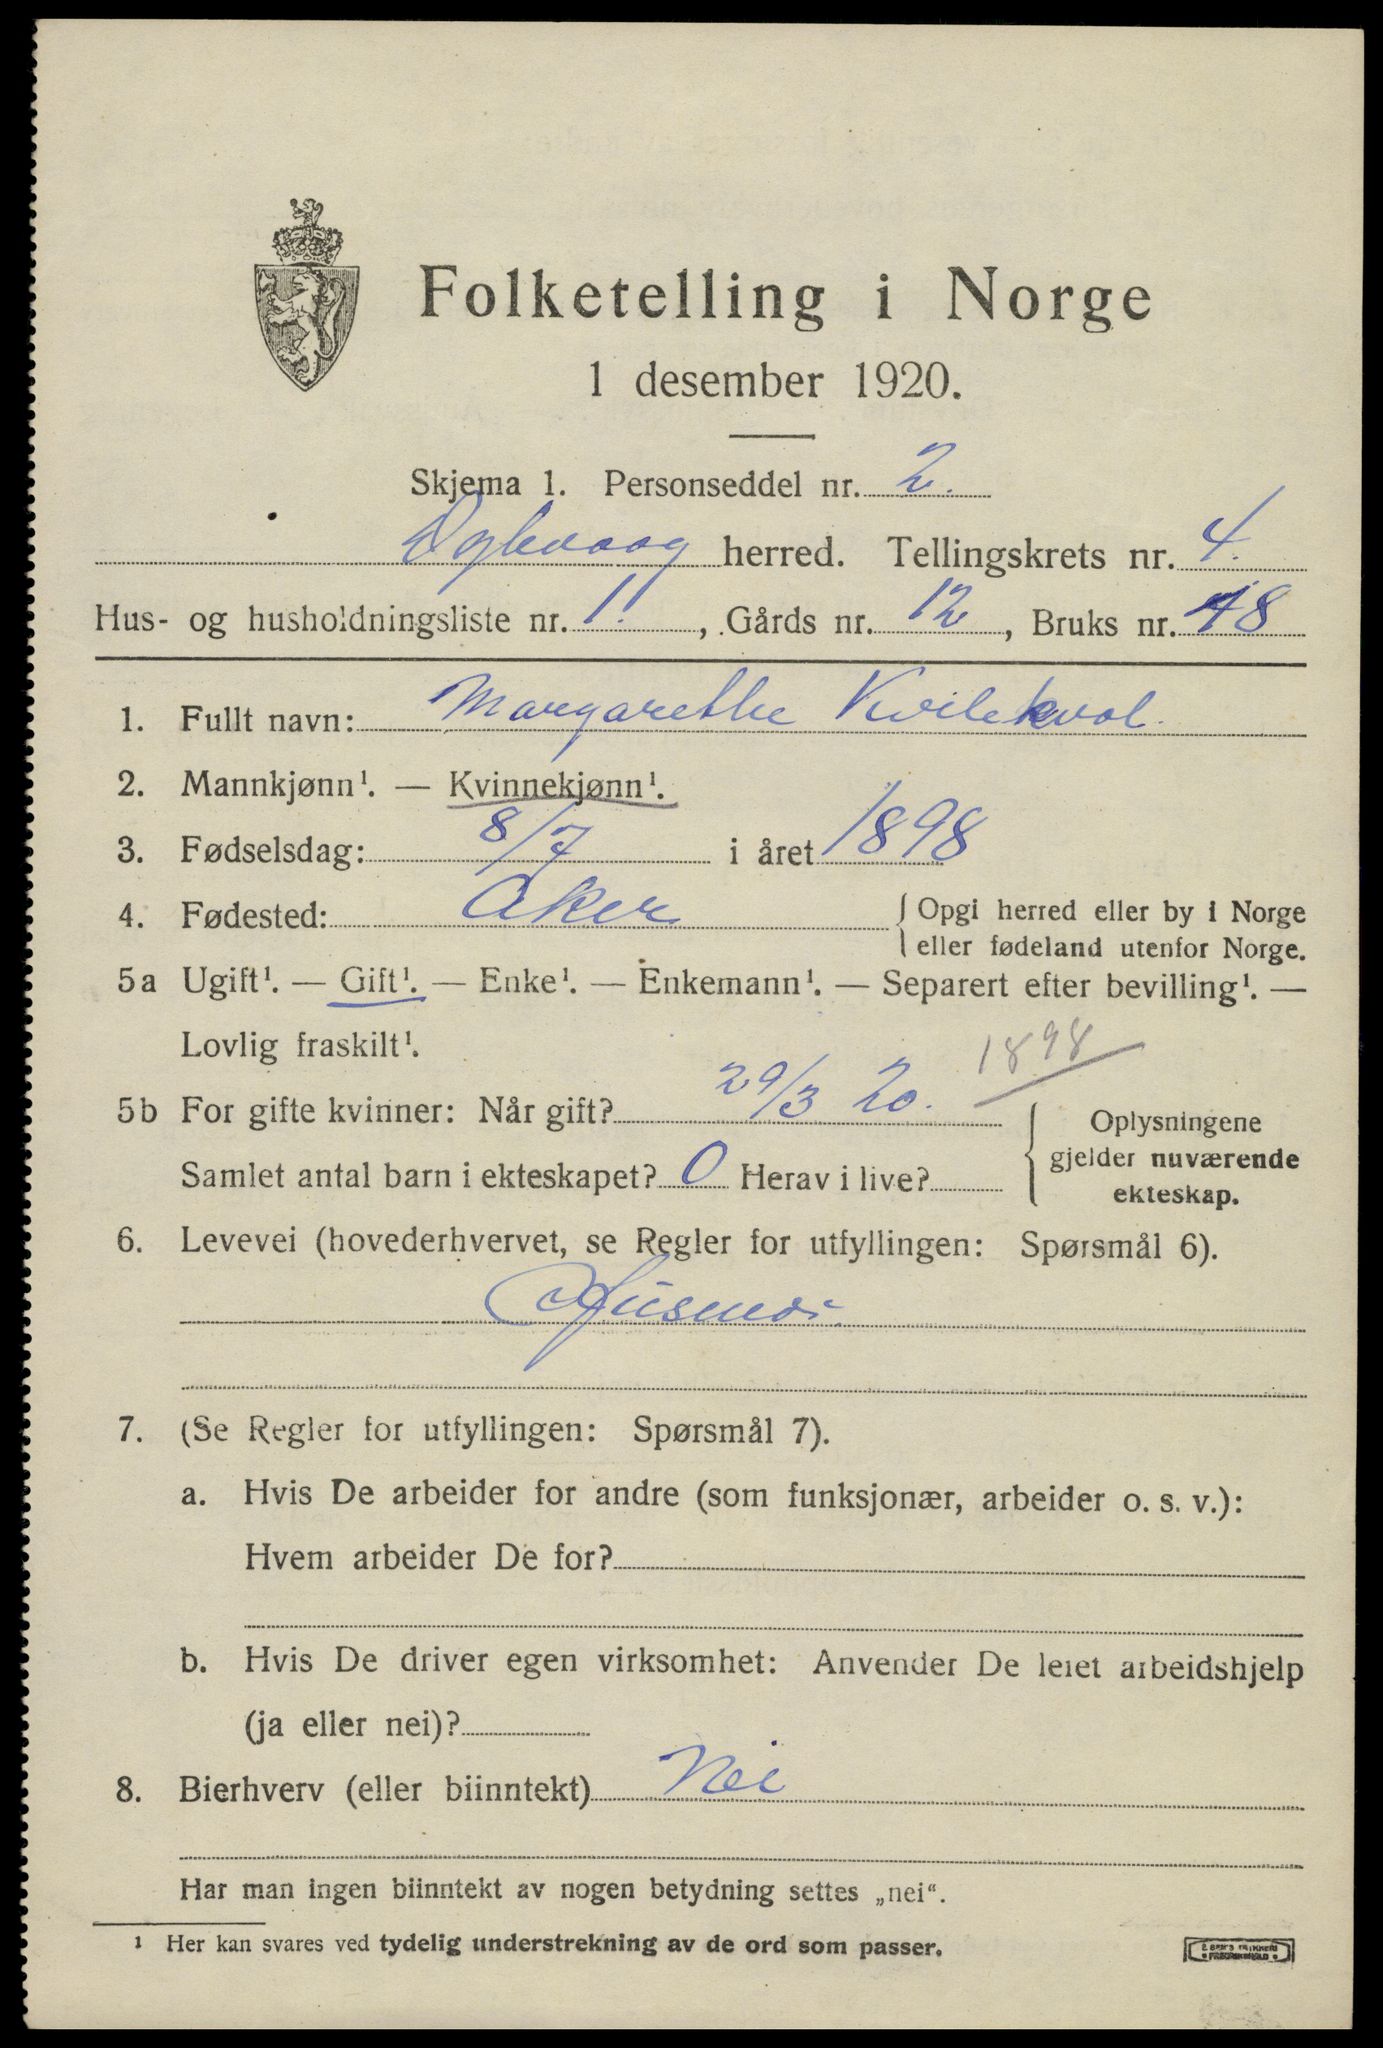 Folketelling i Norge
1 desember 1920.
Skjema 1. Personseddel nr. 2.
Dybvaag herred. Tellingskrets nr. 4.
Hus- og husholdningsliste nr. 1. , Gårds nr. 12 , Bruks nr. 48
1. Fullt navn: Margarethe
2. Mannkjønn¹. — Kvinnekjønn¹.
3. Fødselsdag: 8/7 i året 1898
4. Fødested: Aker { Opgi herred eller by i Norge
eller fødeland utenfor Norge.
5a Ugift¹. — Gift¹. — Enke¹. — Enkemann¹. — Separert efter bevilling¹. —
Lovlig fraskilt¹.
1898
5b For gifte kvinner: Når gift? 29/3 20.
Samlet antal barn i ekteskapet? 0 Herav i live?
{ Oplysningene
gjelder nuværende
ekteskap.
6. Levevei (hovederhvervet, se Regler for utfyllingen: Spørsmål 6).
Husmor.
7. (Se Regler for utfyllingen: Spørsmål 7).
a. Hvis De arbeider for andre (som funksjonær, arbeider o. s. v.):
Hvem arbeider De for?
b. Hvis De driver egen virksomhet: Anvender De leiet arbeidshjelp
(ja eller nei)?
8. Bierhverv (eller biinntekt) Nei
Har man ingen biinntekt av nogen betydning settes „nei“.
¹ Her kan svares ved tydelig understrekning av de ord som passer.